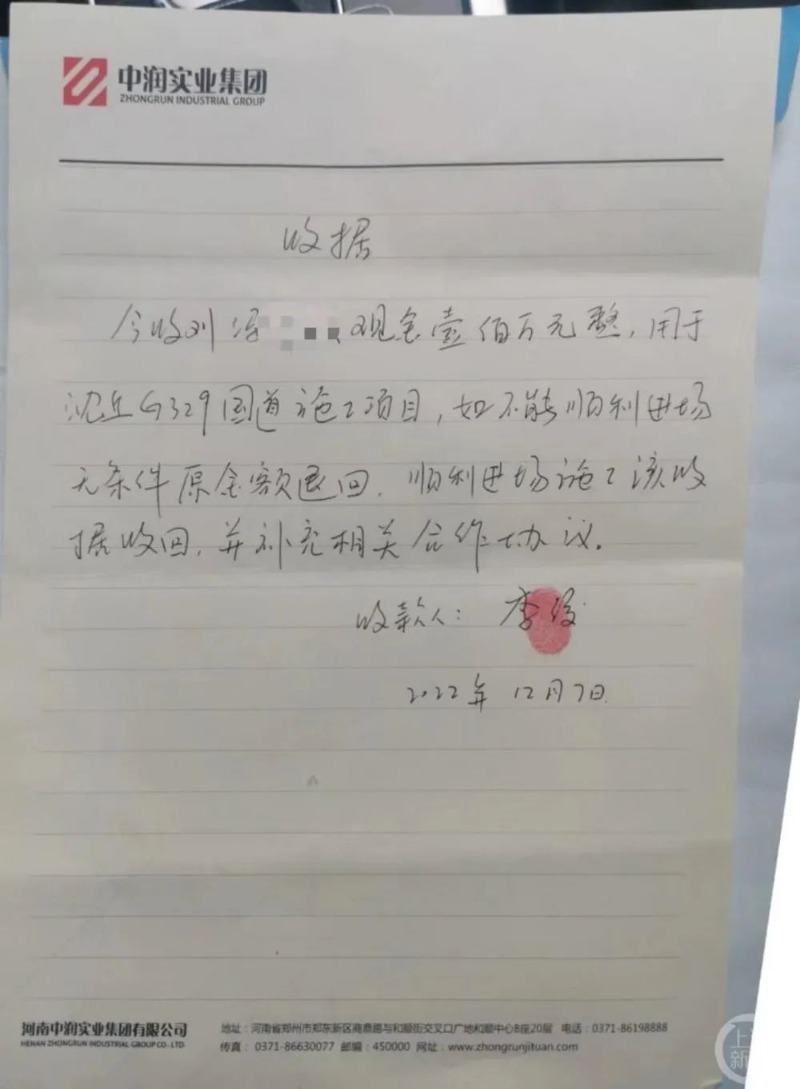 中润实业集团
ZHONGRUN INDUSTRIAL GROUP
收据
今收刘 现金壹佰万元整,用于
沈丘G329国道施工项目,如不能顺利进场
无条件原金额退回.顺利进场施工该收
据收回,并补充相关合作协议.
收款人: 李俊
2022年12月7日
河南中润实业集团有限公司 地址:河南省郑州市郑东新区商鼎路与和顺街交叉口广地和顺中心B座20层 电话:0371-86198888
HENAN ZHONGRUN INDUSTRIAL GROUP CO.,LTD. 传真:0371-86630077 邮编:450000 网址:www.zhongrunjituan.com
上
新